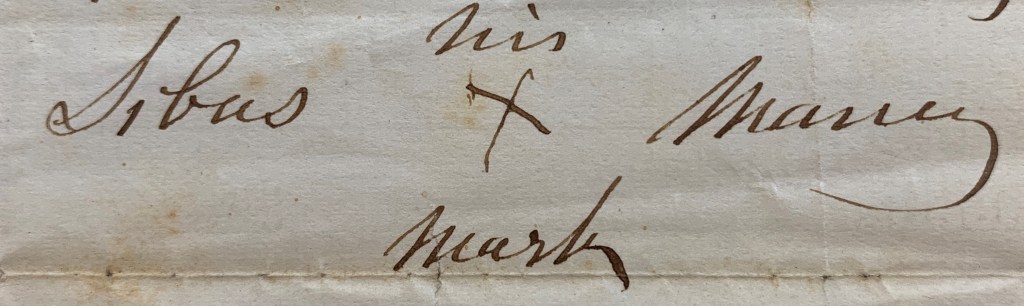 his
Sibus X Maney
mark